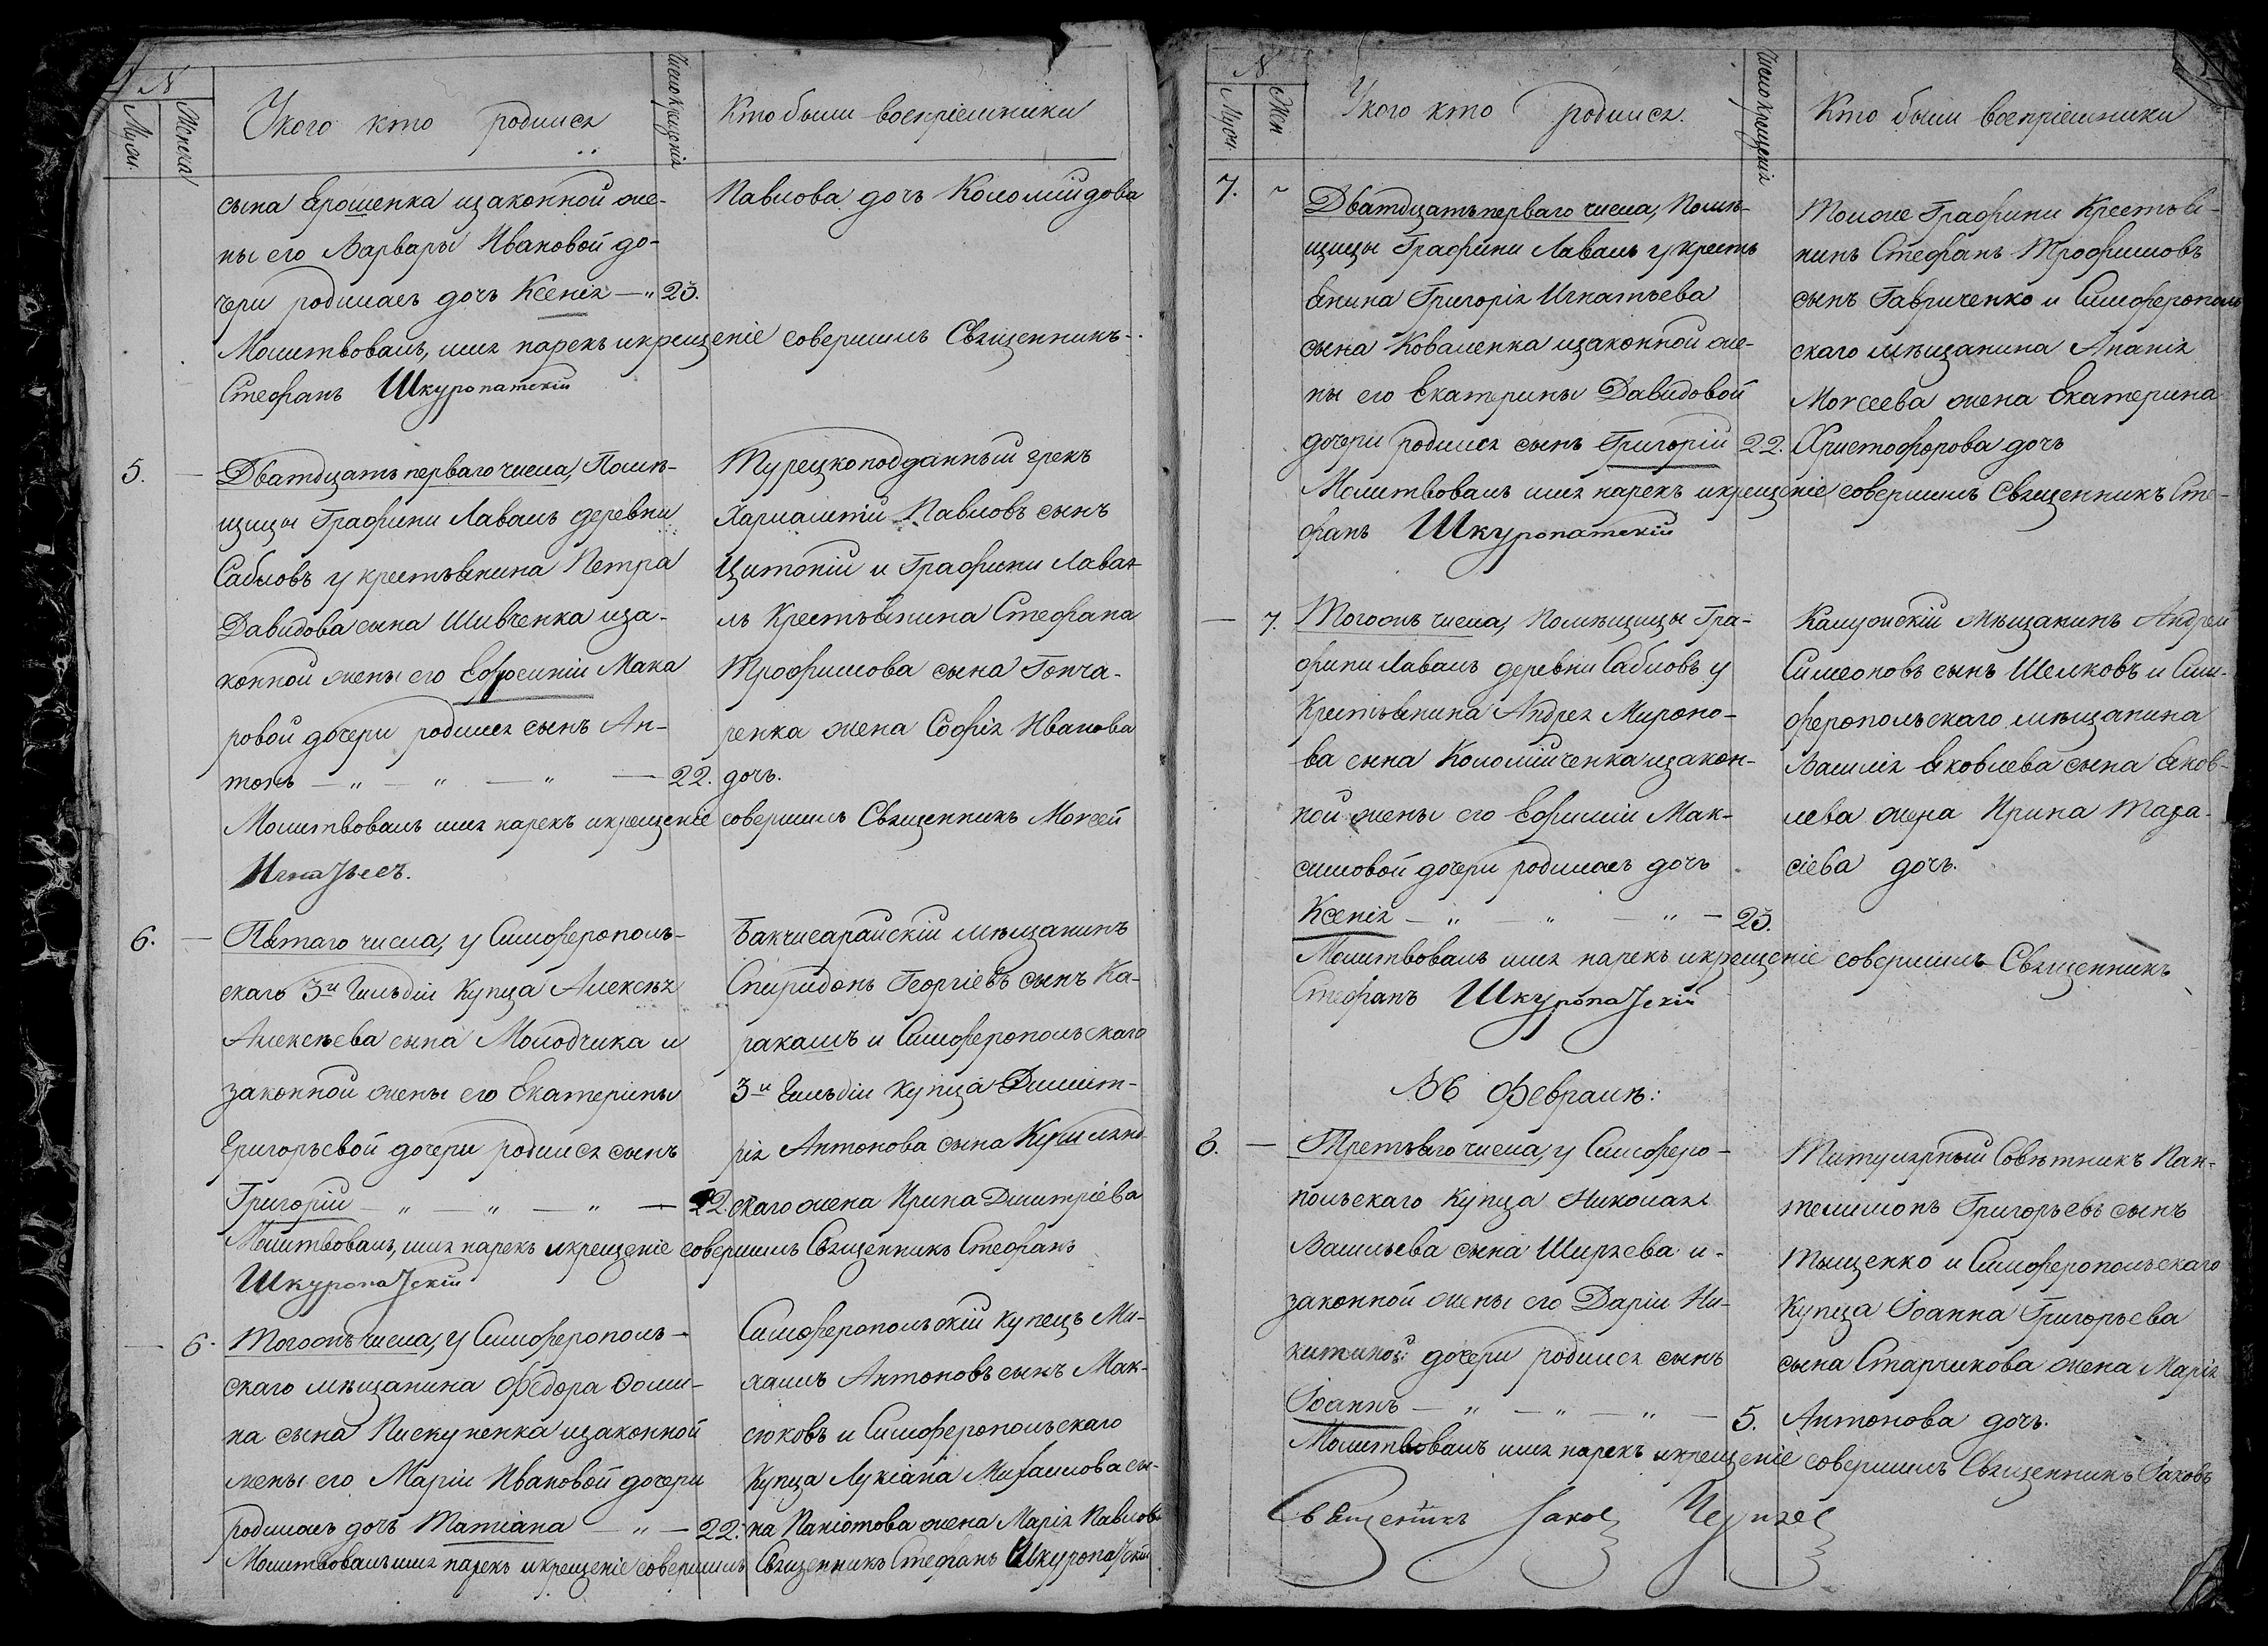 N
Муж.
Женска
У кого кто родился
Число крещенія
Кто были воспріемники
сына Ерошенка и законной же-
ны его Варвары Ивановой до-
чери родилась дочь Ксенія — „ 23.
Павлова дочь Коломійцова
Молитвовалъ, имя нарекъ и крещеніе совершилъ Священникъ
Стефанъ Шкуропатскій
5. —
Дватдцать перваго числа, Помѣ-
щицы Графини Лаваль деревни
Сабловъ у крестьянина Петра
Давидова сына Шивченка и за-
конной жены его Ефросиніи Мака
ровой дочери родился сынъ Ан-
тонъ — „ — „ — „ — 22.
Турецкоподданный грекъ
Харлампій Павловъ сынъ
Цитоній и Графини Лава-
ль Крестьянина Стефана
Трофимова сына Гонча-
ренка жена Софія Иванова
дочь.
Молитвовалъ имя нарекъ и крещеніе совершилъ Священникъ Моисей
Игнатьевъ.
6. —
Пятаго числа, у Симферополь-
скаго 3й Гильдіи Купца Алексѣя
Алексѣева сына Молодчика и
законной жены его Екатерины
Григорьевой дочери родился сынъ
Григорій — „ — „ — „ — 22.
Бакчисарайскій мѣщанинъ
Спиридонъ Георгіевъ сынъ Ка-
ракашъ и Симферопольскаго
3й Гильдіи Купца Димит-
рія Антонова сына
скаго жена Ирина Дмитріева
Молитвовалъ, имя нарекъ и крещеніе совершилъ Священникъ Стефанъ
Шкуропатскій
— 6.
Тогожъ числа, у Симферополь-
скаго мѣщанина Федора Фоми-
на сына Пискуненка и законной
жены его Маріи Ивановой дочери
родилась дочь Татіана — „ — 22.
Симферопольскій Купецъ Ми-
хаилъ Антоновъ сынъ Мак-
сюковъ и Симферопольскаго
Купца Лукіана Михаилова сы-
на Паніотова жена Марія Павлов
Молитвовалъ имя нарекъ и крещеніе совершилъ Священникъ Стефанъ Шкуропатскій
N
Муж.
Жен.
У кого кто родился.
Число крещенія
Кто были воспріемники
7. ~
Дватдцать перваго числа, Помѣ-
щицы Графини Лаваль у кресть
янина Григорія Игнатьева
сына Коваленка и законной же-
ны его Екатерины Давидовой
дочери родился сынъ Григорій 22.
Тойже Графини Крестья-
нинъ Стефанъ Трофимовъ
сынъ Гавриченко и Симферополь
скаго мѣщанина Ананія
Моисеева жена Екатерина
Христофорова дочь
Молитвовалъ имя нарекъ и крещеніе совершилъ Священникъ Сте-
фанъ Шкуропатскій
— 7.
Тогожъ числа, Помѣщицы Гра-
фини Лаваль деревни Сабловъ у
Крестьянина Андрея Мироно-
ва сына Коломійченка и закон-
ной жены его Ефиміи Мак-
симовой дочери родилась дочь
Ксенія — „ — „ — „ — 23.
Калужскій Мѣщанинъ Андрей
Симеоновъ сынъ Шелковъ и Сим-
феропольскаго мѣщанина
Василія Яковлева сына Яков-
лева жена Ирина Тара-
сіева дочь.
Молитвовалъ имя нарекъ и крещеніе совершилъ Священникъ
Стефанъ Шкуропатскій
Въ Февралѣ:
8. —
Третьяго числа, у Симферо-
польскаго Купца Николая
Васильева сына Ширяева и
законной жены его Даріи Ни-
китиной: дочери родился сынъ
Іоаннъ — „ — „ — „ — 5.
Титулярный Совѣтникъ Пан-
телимонъ Григорьевъ сынъ
Тыщенко и Симферопольскаго
Купца Іоанна Григорьева
сына Старчикова жена Марія
Антонова дочь.
Молитвовалъ имя нарекъ и крещеніе совершилъ Священникъ Іаковъ
Священникъ Іаковъ